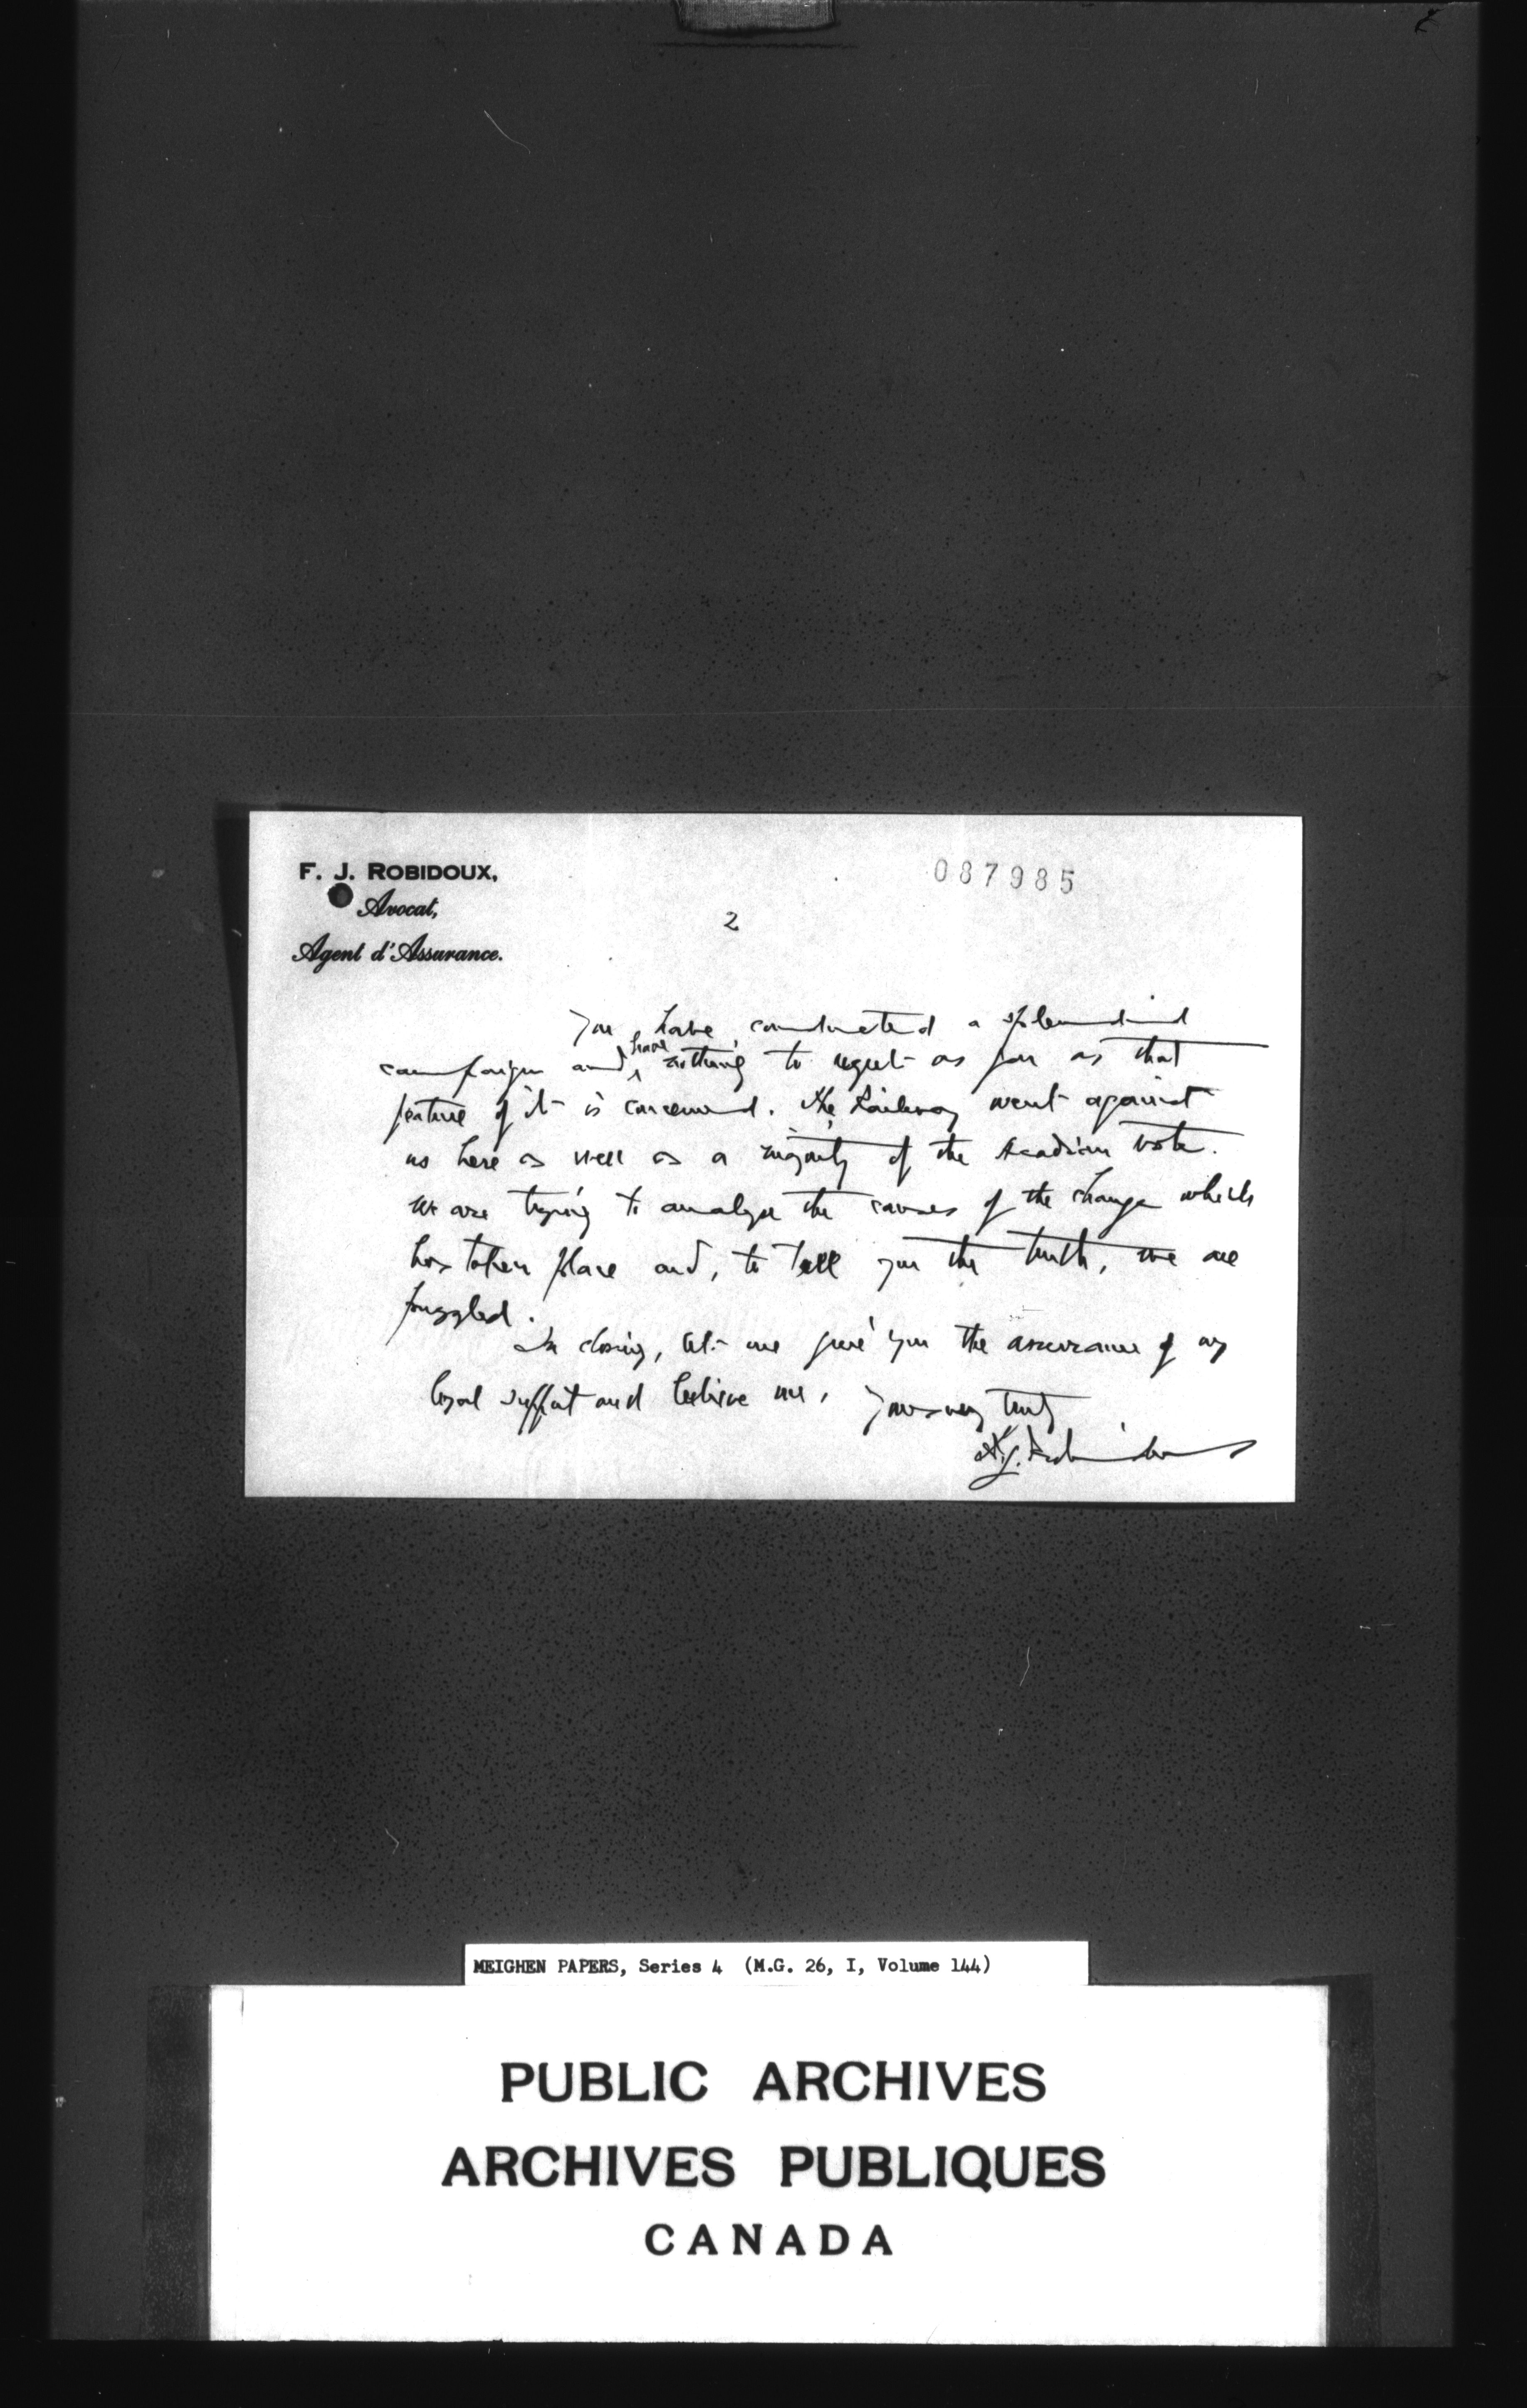 F. J. ROBIDOUX,
Avocat,
Agent d'Assurance.
087985
2
You have conducted a splendid
campaign and have nothing to regret as far as that
feature of it is concerned. The Railway went against
us here as well as a majority of the Acadian vote.
We are trying to analyze the causes of the change which
has taken place and, to tell you the truth, we are
puzzled.
In closing, let me give you the assurance of my
loyal support and believe me,
Yours very truly
F. J. Robidoux
MEIGHEN PAPERS, Series 4 (M.G. 26, I, Volume 144)
PUBLIC ARCHIVES
ARCHIVES PUBLIQUES
CANADA